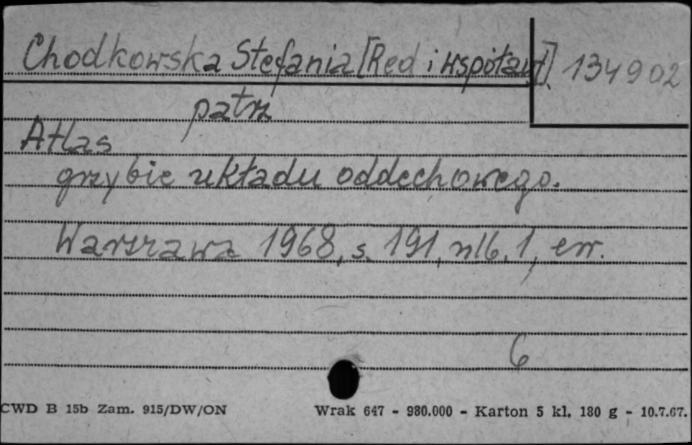 Chodkowska Stefania [Red i współaut] 134902
patrz
Atlas
grzybic układu oddechowego.
Warszawa 1968, s. 191, nlb. 1, err.
6
CWD B 15b Zam. 915/DW/ON Wrak 647 - 980.000 - Karton 5 kl. 180 g - 10.7.67.